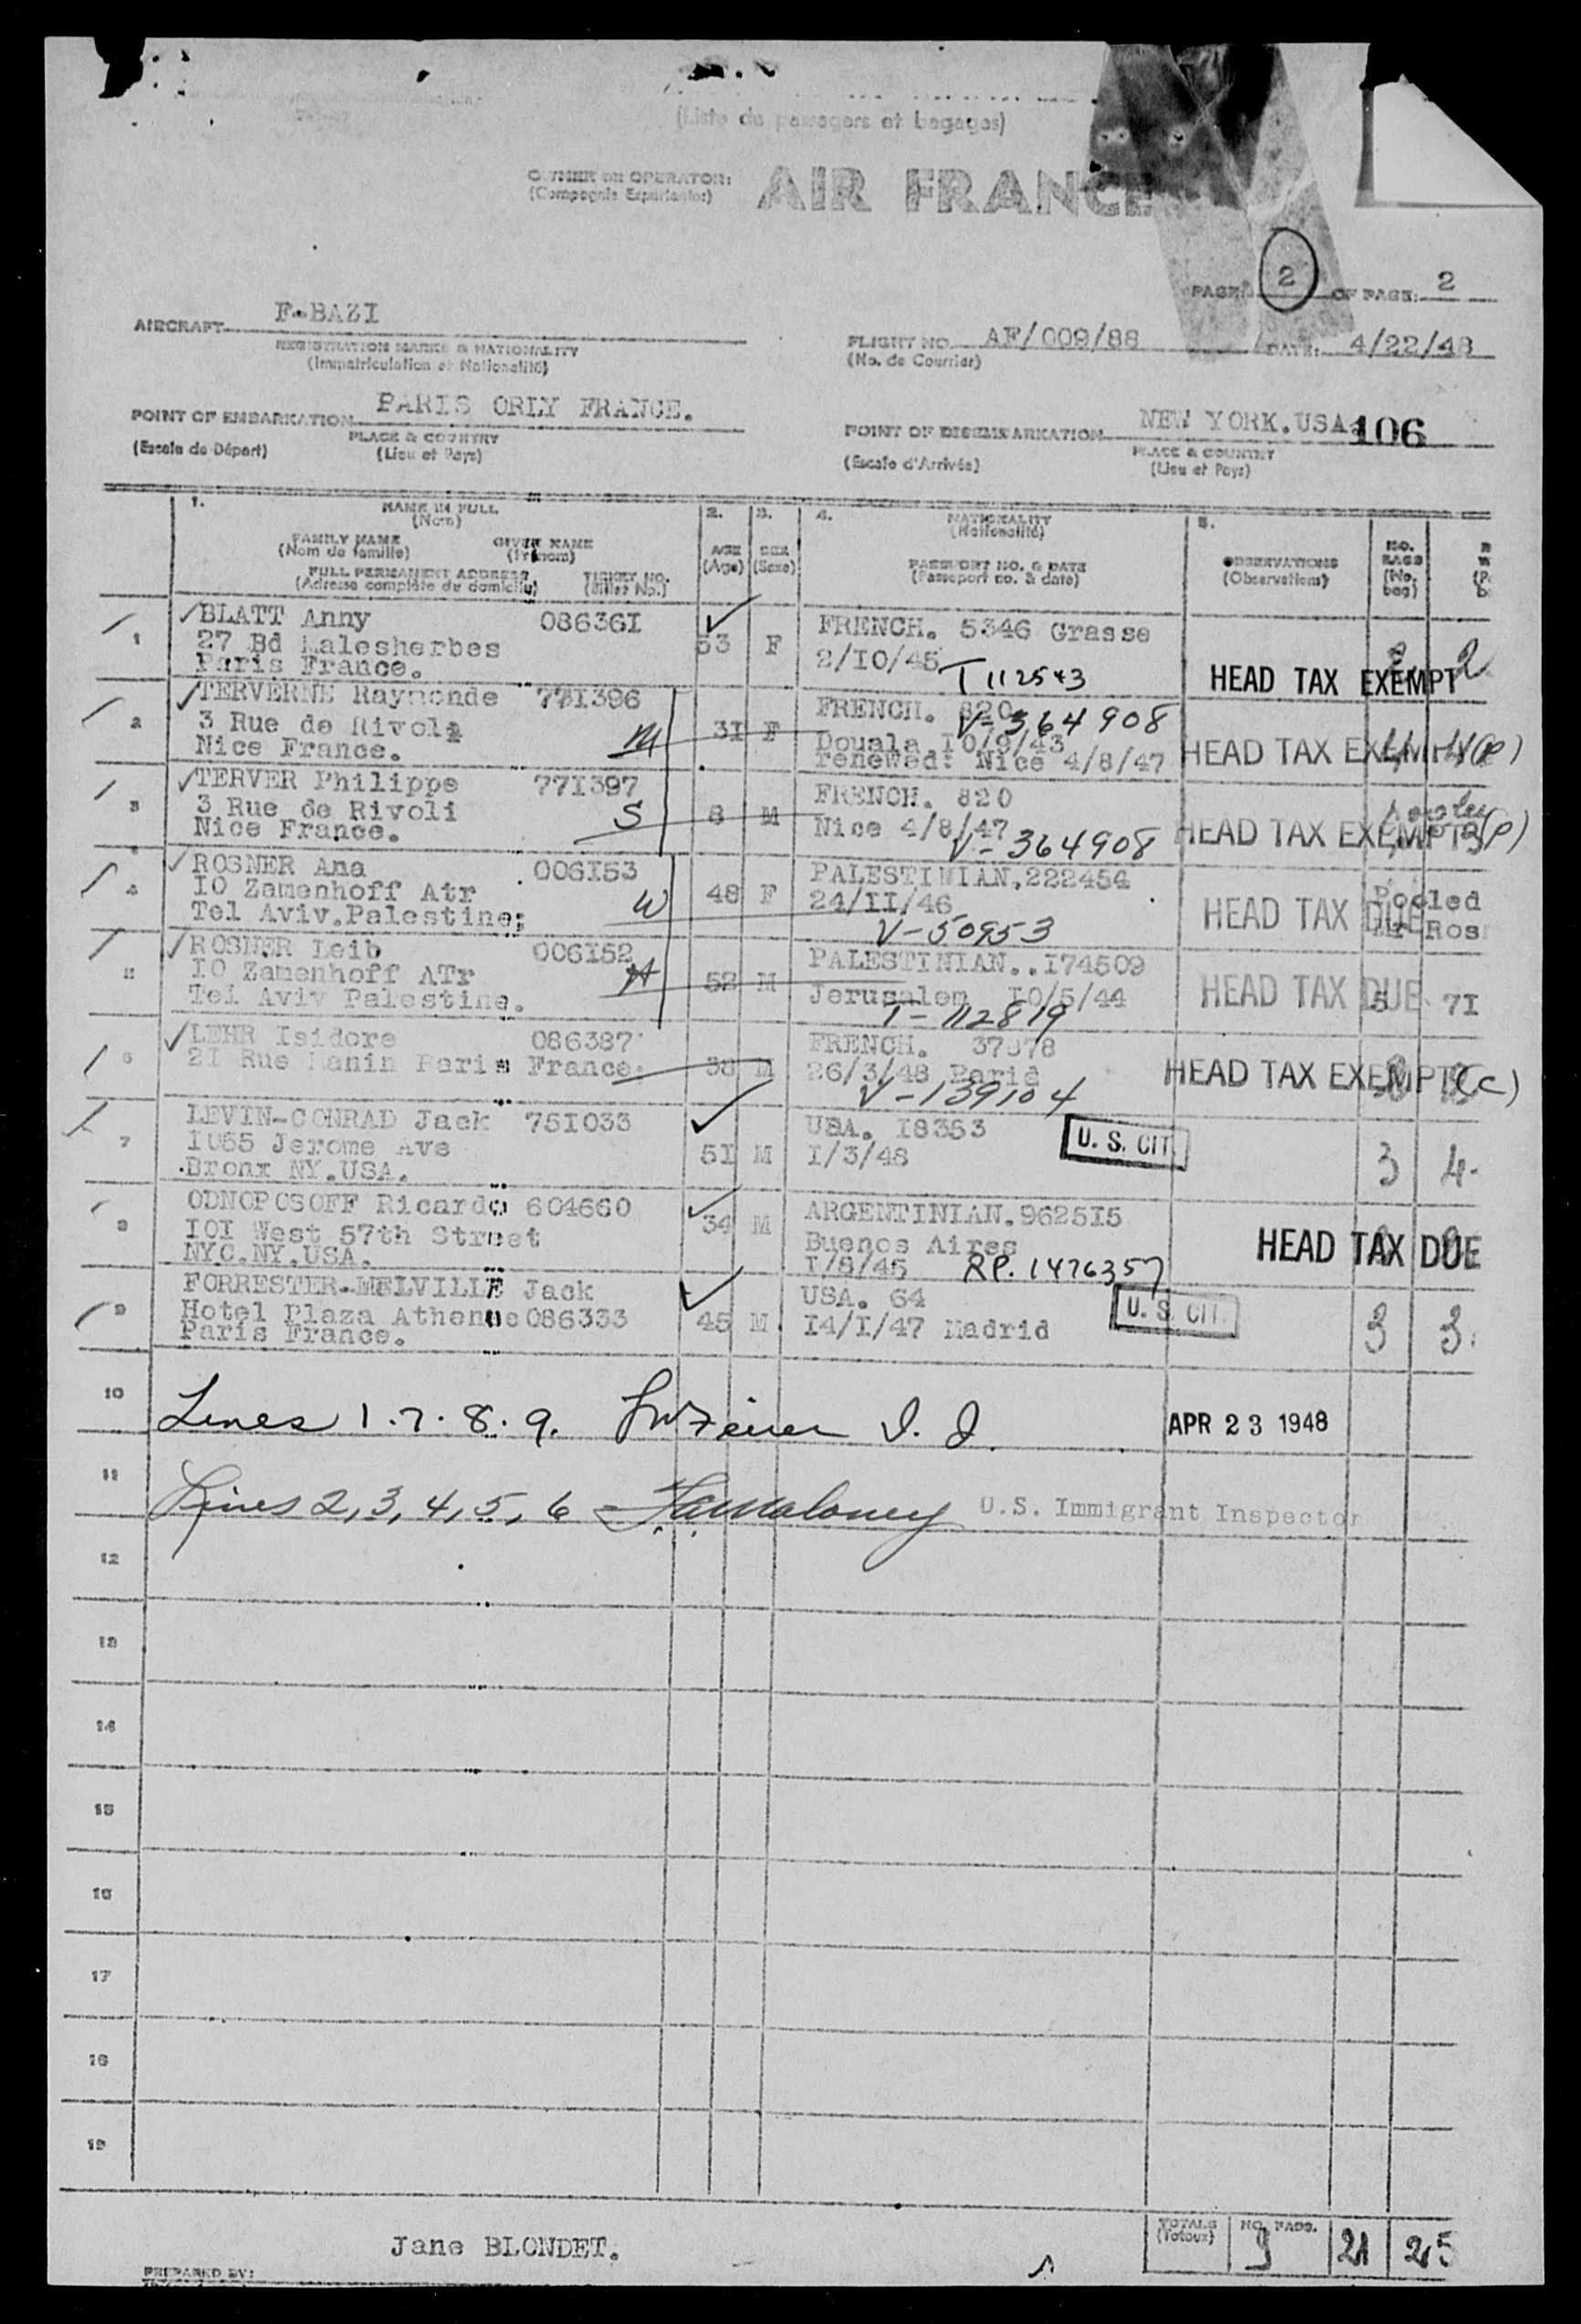 (Liste de passagers et bagages)
OWNER OR OPERATOR: AIR FRANCE
(Compagnie Exploitante)
PAGE: 2 OF PAGE: 2
AIRCRAFT F-BAZI
REGISTRATION MARKS & NATIONALITY
(Immatriculation et Nationalité)
FLIGHT NO. AF/009/88 DATE: 4/22/48
(No. de Courrier)
POINT OF EMBARKATION PARIS ORLY FRANCE.
(Escale de Départ) PLACE & COUNTRY
(Lieu et Pays)
POINT OF DISEMBARKATION NEW YORK.USA 106
(Escale d'Arrivée) PLACE & COUNTRY
(Lieu et Pays)
1. NAME IN FULL 2. 3. 4. NATIONALITY 5.
(Nom) (Nationalité)
FAMILY NAME GIVEN NAME AGE SEX OBSERVATIONS NO. BAGS
(Nom de famille) (Prénom) (Age) (Sexe) (Observations) (No. bag)
FULL PERMANENT ADDRESS TICKET NO. PASSPORT NO. & DATE
(Adresse complète du domicile) (Billet No.) (Passeport no. & date)
1 BLATT Anny 086361 53 F FRENCH. 5346 Grasse
27 Bd Malesherbes 2/10/45 T 112543
Paris France. HEAD TAX EXEMPT 2
2 TERVERNE Raymonde 771396 31 F FRENCH. 820
3 Rue de Rivoli M V-364908
Nice France. Douala 10/9/43
renewed: Nice 4/8/47 HEAD TAX EXEMPT
3 TERVER Philippe 771397 8 M FRENCH. 820
3 Rue de Rivoli S Nice 4/8/47
Nice France. V-364908 HEAD TAX EXEMPT (P)
4 ROSNER Ana 006153 48 F PALESTINIAN.222454
10 Zamenhoff Atr W 24/11/46 Pooled
Tel Aviv.Palestine; V-50953 HEAD TAX DUE
5 ROSNER Leib 006152 52 M PALESTINIAN..174509
10 Zamenhoff ATr H Jerusalem 10/5/44
Tel Aviv Palestine. T-112819 HEAD TAX DUE 5 71
6 LEHR Isidore 086387 38 M FRENCH. 37078
21 Rue Manin Paris France. 26/3/48 Paris
V-139104 HEAD TAX EXEMPT (C)
7 LEVIN-CONRAD Jack 751033 51 M USA. 18353
1065 Jerome Ave 1/3/48 U. S. CIT. 3 4
Bronx NY.USA.
8 ODNOPOSOFF Ricardo 604660 34 M ARGENTINIAN.962515
101 West 57th Street Buenos Aires
NYC.NY.USA. 1/8/45 RP. 1476357 HEAD TAX DUE
9 FORRESTER-MELVILLE Jack 45 M USA. 64
Hotel Plaza Athenee 086333 14/1/47 Madrid U. S. CIT. 3 3
Paris France.
10 Lines 1.7.8.9. I. I. APR 23 1948
11 Lines 2,3,4,5,6 Maloney U.S. Immigrant Inspector
12
13
14
15
16
17
18
19
TOTALS NO. PASS. 9 21 25
(Totaux)
Jane BLONDET.
PREPARED BY: